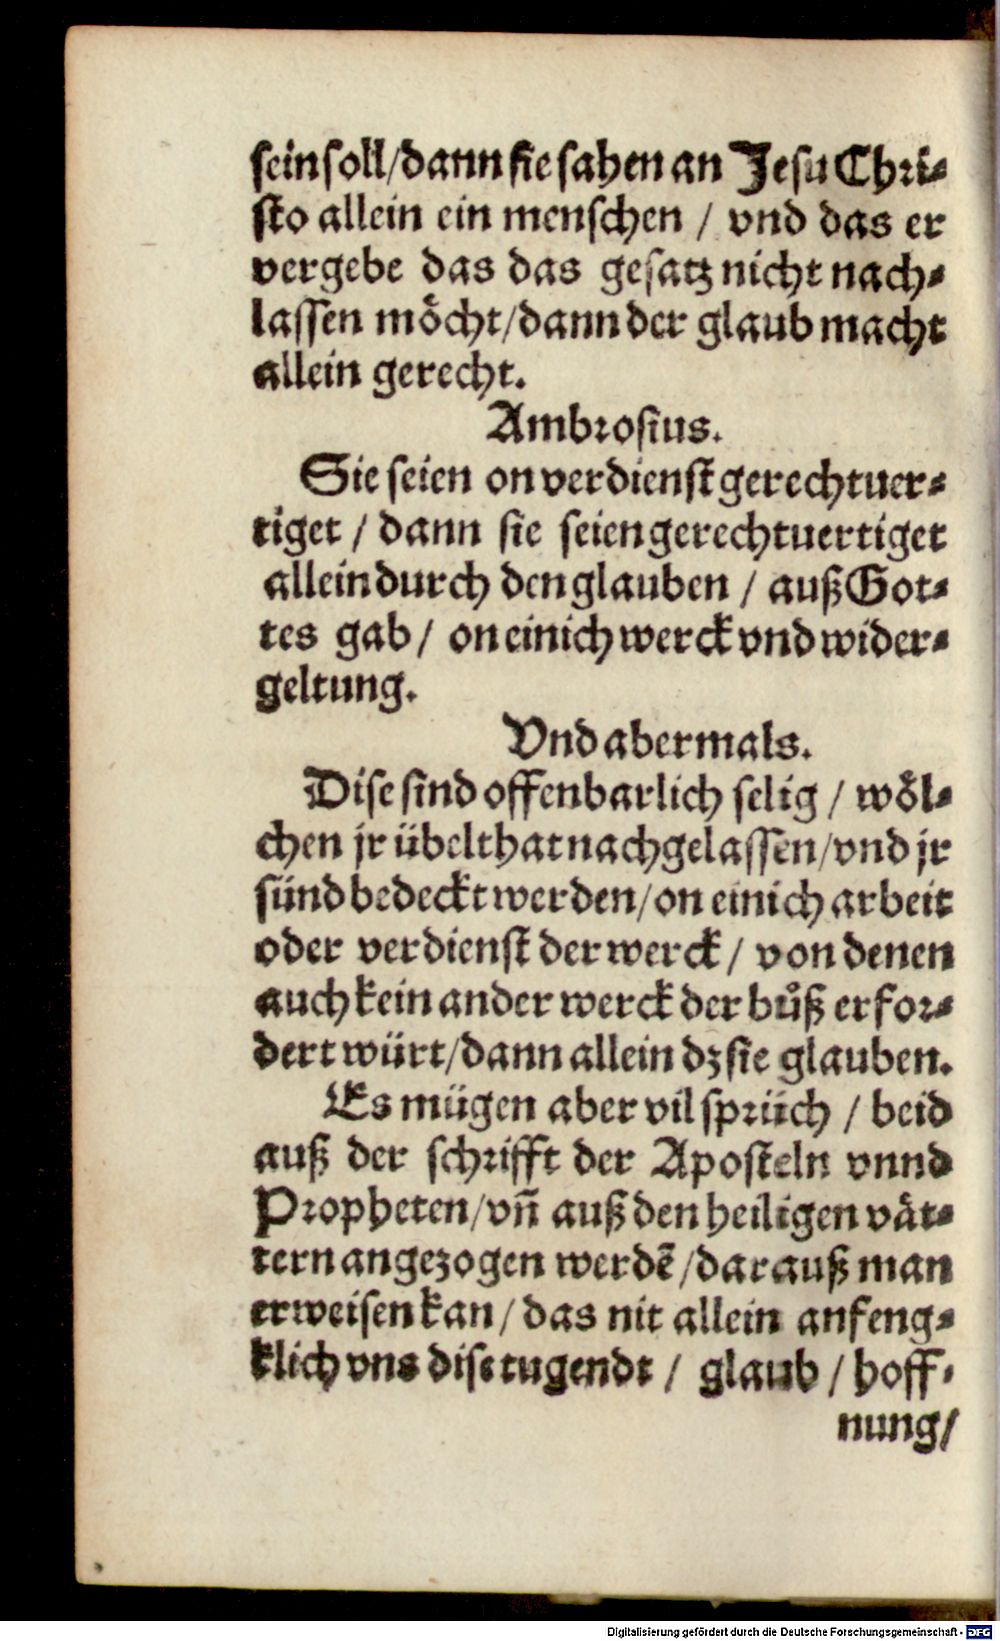 sein soll/dann sie sahen an Jesu Chri⸗
sto allein ein menschen / vnd das er
vergebe das das gesatz nicht nach⸗
lassen moͤcht/dann der glaub macht
allein gerecht.
Ambrosius.
Sie seien on verdienst gerechtuer⸗
tiget / dann sie seien gerechtuertiget
allein durch den glauben / auß Got⸗
tes gab / on einich werck vnd wider⸗
geltung.
Vnd abermals.
Dise sind offenbarlich selig / woͤl⸗
chen jr übelthat nachgelassen/vnd jr
sünd bedeckt werden/on einich arbeit
oder verdienst der werck / von denen
auch kein ander werck der buͦß erfor⸗
dert würt/dann allein dz sie glauben.
Es mügen aber vil sprüch / beid
auß der schrifft der Aposteln vnnd
Propheten/vñ auß den heiligen vaͤt⸗
tern angezogen werdē/darauß man
erweisen kan / das nit allein anfeng⸗
klich vns dise tugendt / glaub / hoff⸗
nung/
Digitalisierung gefördert durch die Deutsche Forschungsgemeinschaft - DFG